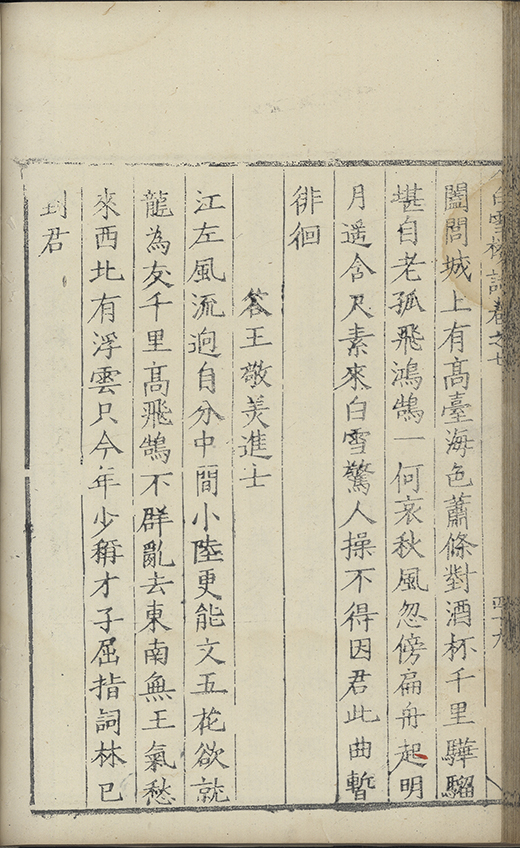 白雪樓詩卷之七
四十九
闔閭城上有髙臺海色蕭條對酒杯千里驊騮
堪自老孤飛鴻鵠一何哀秋風忽傍扁舟起明
月遥含尺素來白雪驚人操不得因君此曲暫
徘徊
答王敬美進士
江左風流逈自分中間小陸更能文五花欲就
龍為友千里髙飛鵠不群亂去東南無王氣愁
來西北有浮雲只今年少稱才子屈指詞林已
到君